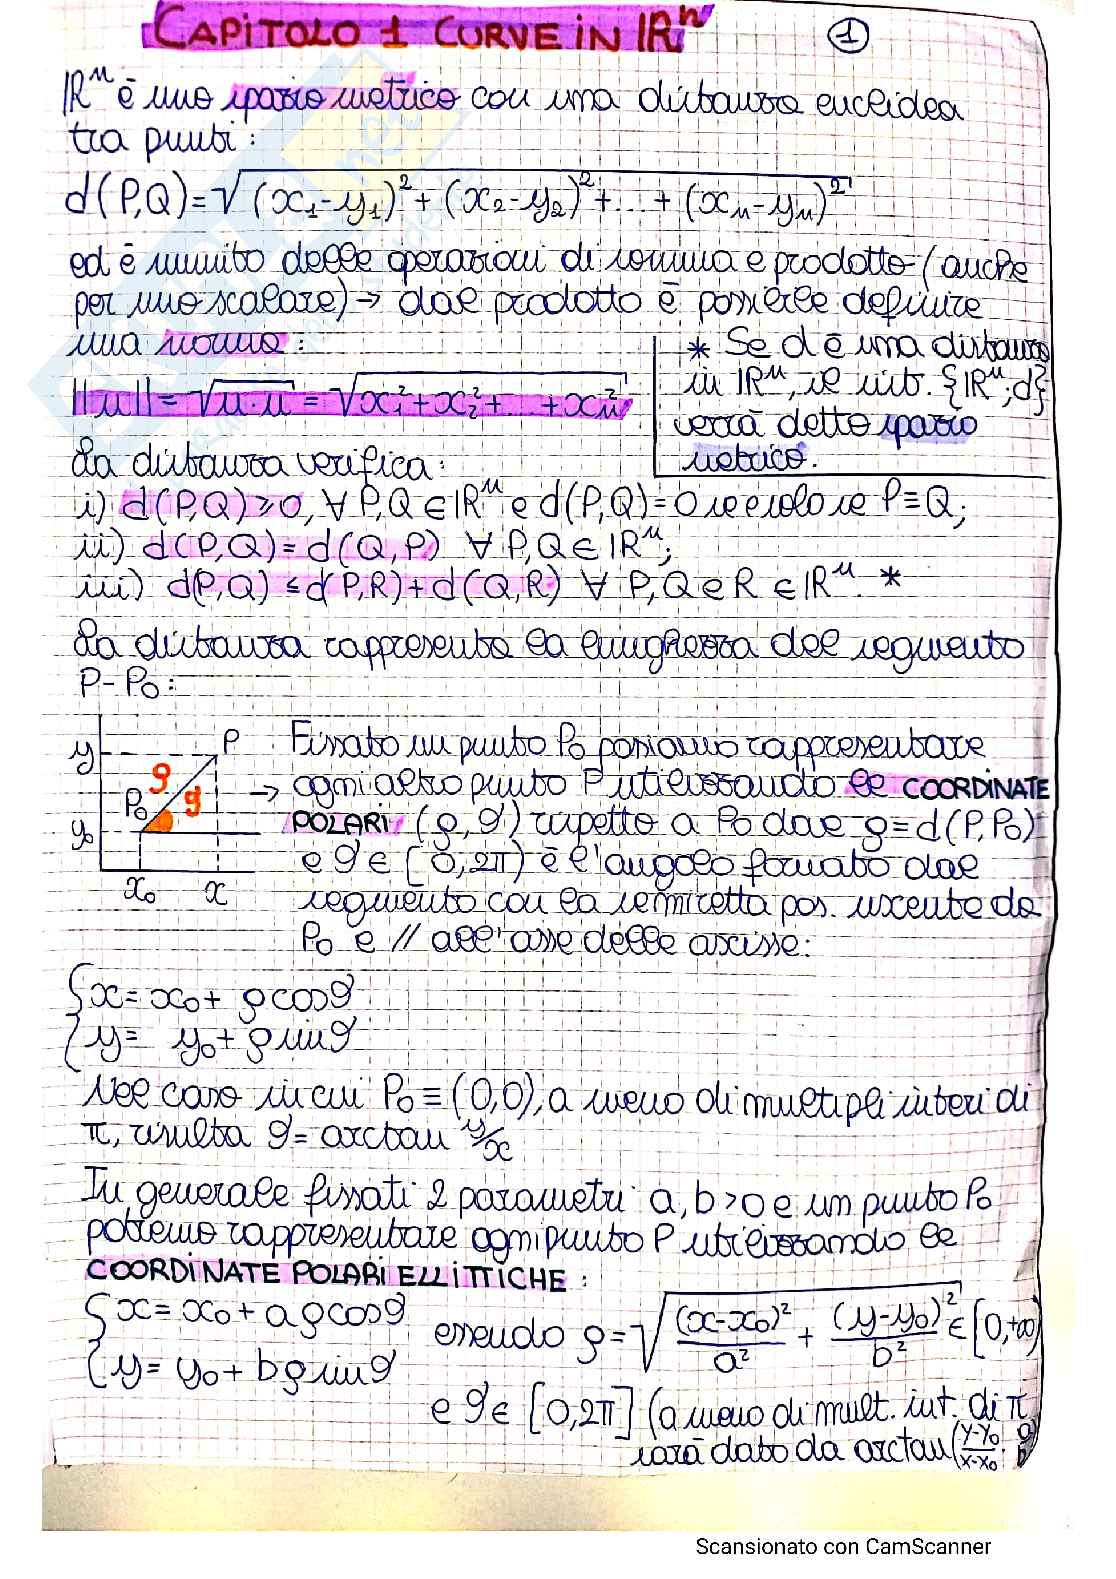 CAPITOLO 1 CURVE IN ℝⁿ
1
ℝⁿ è uno spazio metrico con una distanza euclidea
tra punti:
d(P,Q)=√((x₁-y₁)²+(x₂-y₂)²+...+(xₙ-yₙ)²)
ed è munito delle operazioni di somma e prodotto (anche
per uno scalare) → dal prodotto è possibile definire
una norma:
||u|| = √(u·u) = √(x₁²+x₂²+...+xₙ²)
* Se d è una distanza
in ℝⁿ, il int. {ℝⁿ;d}
verrà detto spazio
metrico.
La distanza verifica:
i) d(P,Q)≥0, ∀ P,Q ∈ ℝⁿ e d(P,Q)=0 se e solo se P≡Q;
ii) d(P,Q)=d(Q,P) ∀ P,Q ∈ ℝⁿ;
iii) d(P,Q)≤d(P,R)+d(Q,R) ∀ P,Q e R ∈ ℝⁿ. *
La distanza rappresenta la lunghezza del segmento
P-P₀:
y
P
ρ
P₀
ϑ
y₀
x₀ x
→
Fissato un punto P₀ possiamo rappresentare
ogni altro punto P utilizzando le COORDINATE
POLARI (ρ,ϑ) rispetto a P₀ dae ρ=d(P,P₀)
e ϑ ∈ [0,2π) è l'angolo formato dal
segmento con la semiretta pos. uscente da
P₀ e // all'asse delle ascisse:
{x= x₀+ ρcosϑ
{y= y₀+ ρsinϑ
Nel caso in cui P₀≡(0,0), a meno di multipli interi di
π, risulta ϑ= arctan y/x
In generale fissati 2 parametri a,b>0 e un punto P₀
potremo rappresentare ogni punto P utilizzando le
COORDINATE POLARI ELLITTICHE:
{x= x₀+ aρcosϑ
{y= y₀+ bρsinϑ
essendo ρ=√((x-x₀)²/a² + (y-y₀)²/b²) ∈ [0,+∞)
e ϑ∈ [0,2π] (a meno di mult. int. di π
sarà dato da arctan(y-y₀/x-x₀ · a/b
Scansionato con CamScanner